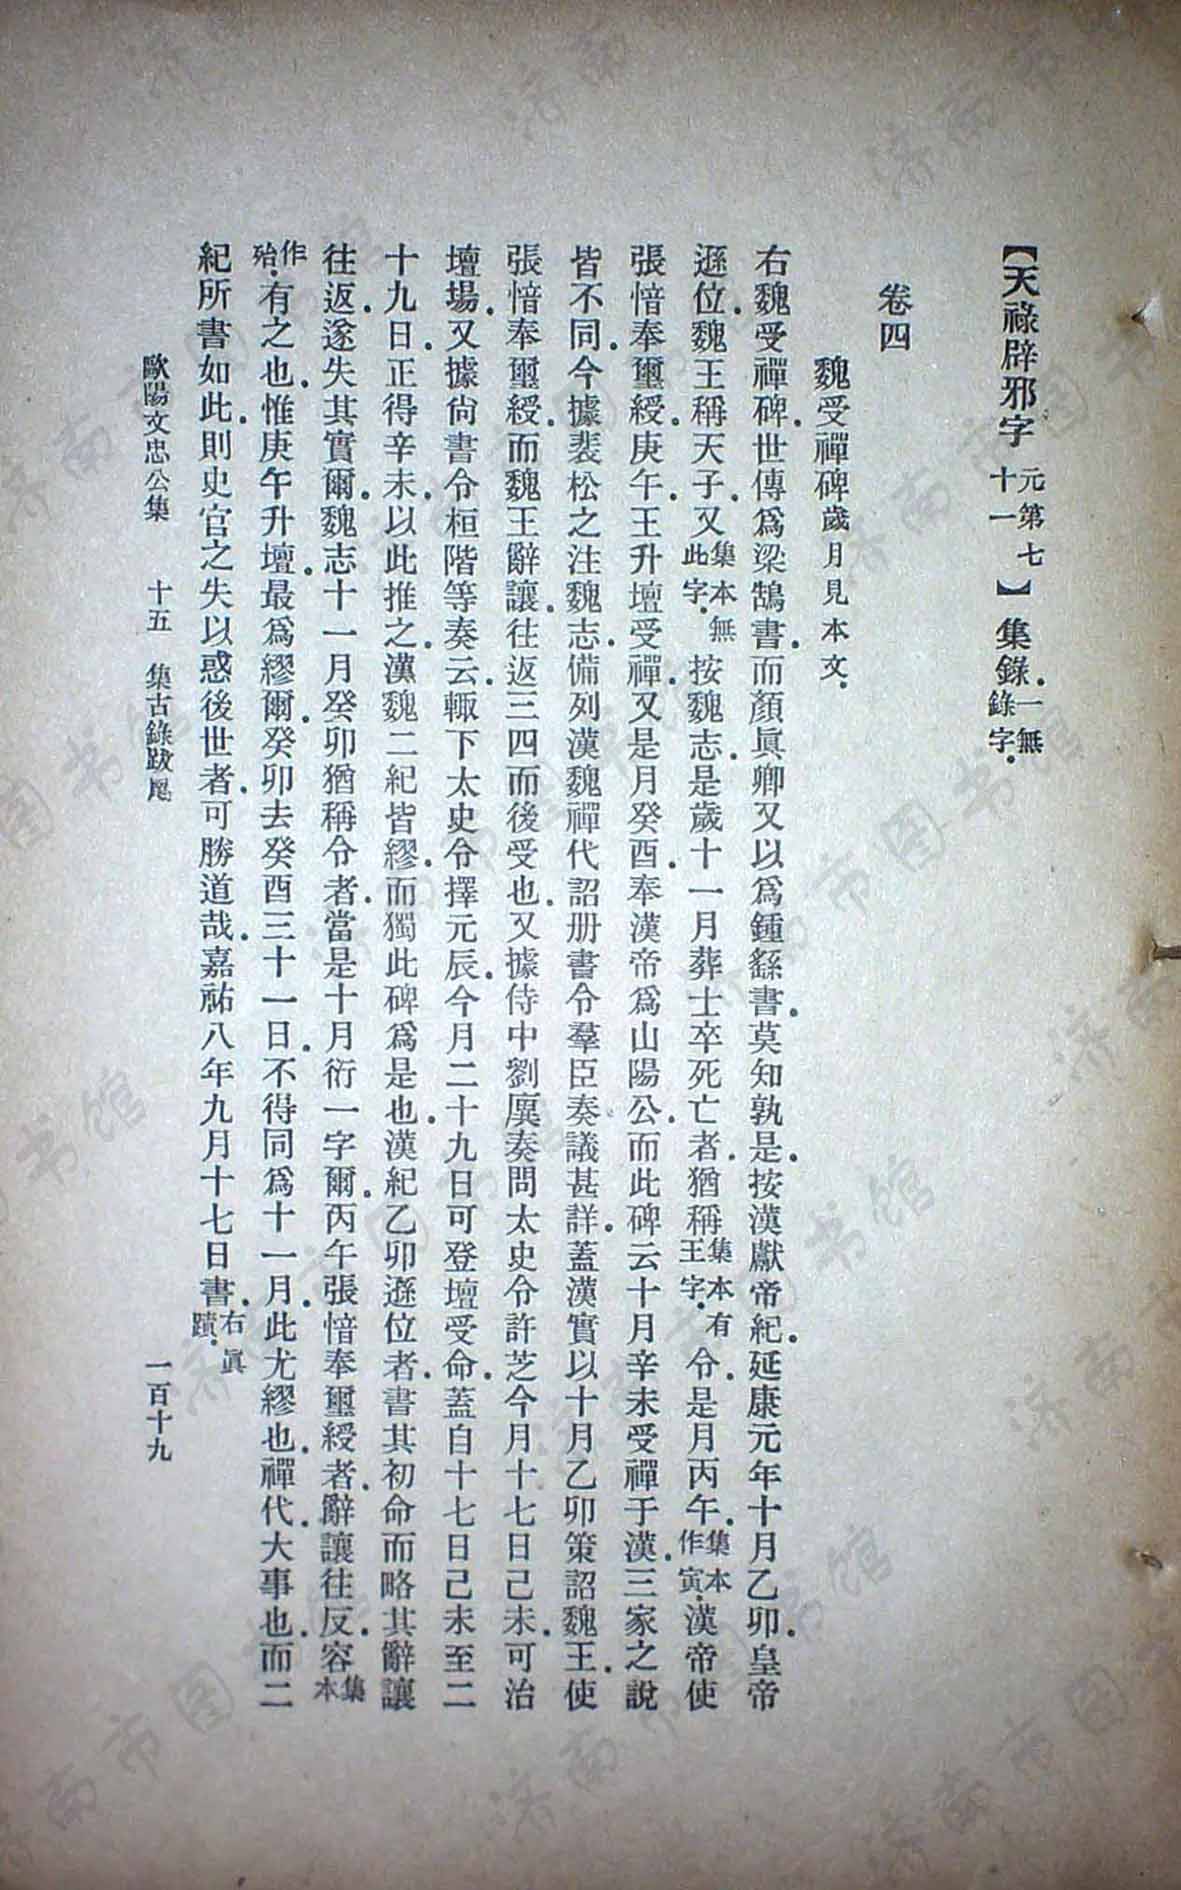 【天祿辟邪字元第七十一】集錄．一無錄字．
卷四
魏受禪碑歲月見本文．
右魏受禪碑．世傳爲梁鵠書．而顏眞卿又以爲鍾繇書．莫知孰是．按漢獻帝紀．延康元年十月乙卯．皇帝
遜位．魏王稱天子．又集本無此字．按魏志．是歲十一月葬士卒死亡者．猶稱集本有王字．令．是月丙午．集本作寅．漢帝使
張愔奉璽綬．庚午．王升壇受禪．又是月癸酉．奉漢帝爲山陽公．而此碑云十月辛未受禪于漢．三家之說
皆不同．今據裴松之注魏志．備列漢魏禪代詔册書令羣臣奏議甚詳．蓋漢實以十月乙卯策詔魏王．使
張愔奉璽綬．而魏王辭讓．往返三四而後受也．又據侍中劉廙奏問太史令許芝今月十七日己未．可治
壇場．又據尙書令桓階等奏云．輒下太史令擇元辰．今月二十九日可登壇受命．蓋自十七日己未至二
十九日．正得辛未．以此推之．漢魏二紀皆繆．而獨此碑爲是也．漢紀乙卯遜位者．書其初命而略其辭讓
往返．遂失其實爾．魏志十一月癸卯猶稱令者．當是十月衍一字爾．丙午張愔奉璽綬者．辭讓往反．容集本
作殆．有之也．惟庚午升壇．最爲繆爾．癸卯去癸酉三十一日．不得同爲十一月．此尤繆也．禪代．大事也．而二
紀所書如此．則史官之失以惑後世者．可勝道哉．嘉祐八年九月十七日書．右眞蹟．
歐陽文忠公集　十五　集古錄跋尾　一百十九